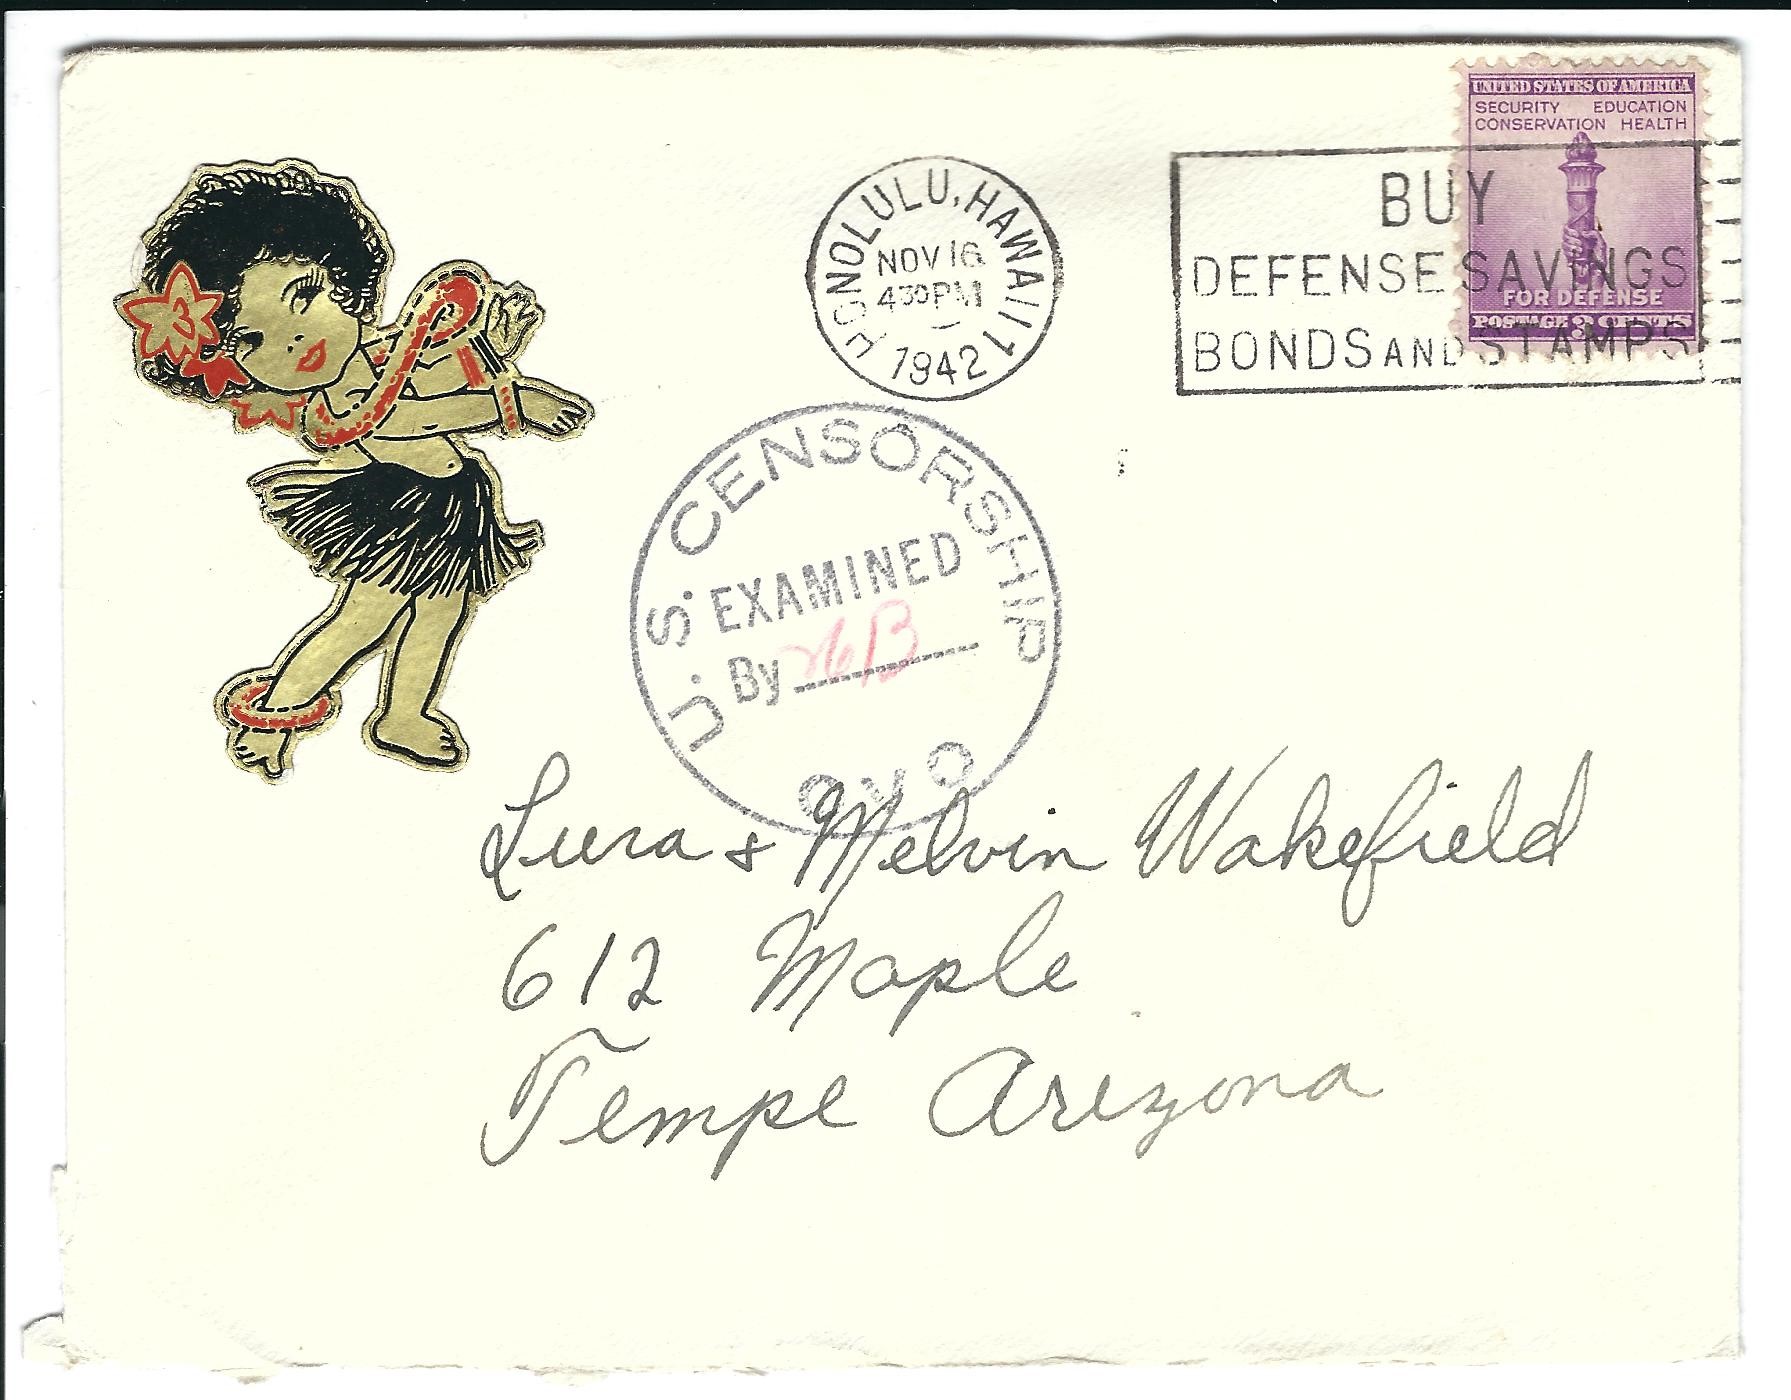 UNITED STATES OF AMERICA
SECURITY EDUCATION
CONSERVATION HEALTH
FOR DEFENSE
POSTAGE 3 CENTS
HONOLULU, HAWAII 1
NOV 16
430 PM
1942
BUY
DEFENSE SAVINGS
BONDS AND STAMPS
U. S. CENSORSHIP
EXAMINED
By
Lura & Melvin Wakefield
612 Maple
Tempe Arizona